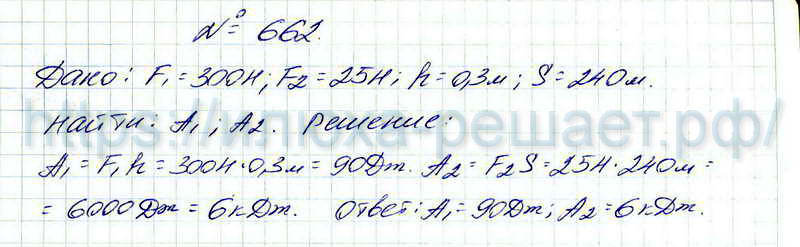 № 662.
Дано: F₁ = 300Н; F₂ = 25Н; h = 0,3м; S = 240м.
Найти: A₁; A₂. Решение:
A₁ = F₁h = 300Н·0,3м = 90Дж. A₂ = F₂S = 25Н·240м =
= 6000Дж = 6кДж. Ответ: A₁ = 90Дж; A₂ = 6кДж.